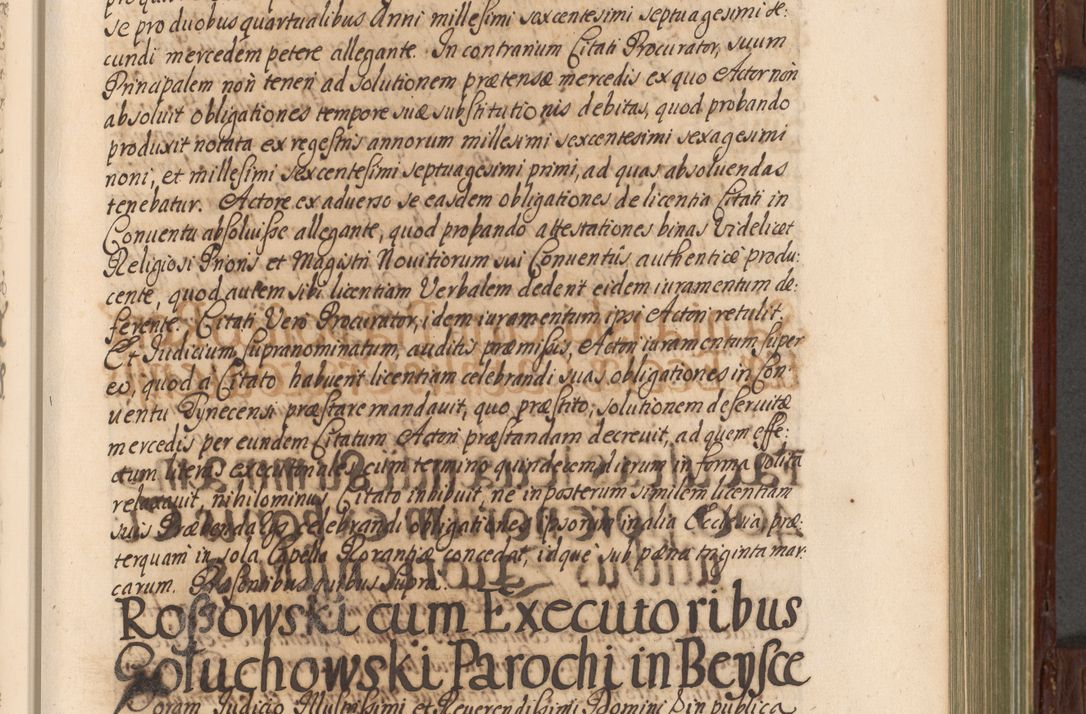 se pro duobus quartualibus Anni millesimi sexcentesimi septuagesimi se:
cundi mercedem petere allegante. In contrarium Citati Procurator, suum
Principalem non teneri ad solutionem prætensæ mercedis ex quo Actor non
absoluit obligationes tempore suæ substitutionis debitas, quod probando
produxit notata ex regestris annorum millesimi sexcentesimi sexagesimi
noni, et millesimi sexcentesimi septuagesimi primi, ad quas absoluendas
tenebatur. Actore ex aduerso se easdem obligationes de licentia Citati in
Conuentu absoluisse allegante, quod probando attestationes binas Videlicet
Religiosi Prioris et Magistri Nouitiorum sui Conuentûs authenticè produ:
cente, quod autem sibi licentiam Verbalem dederit eidem iuramentum de:
ferente. Citati Vero Procurator, idem iuramentum ipsi Actori retulit.
Et Iudicium supranominatum, auditis præmissis, Actori iuramentum super
eo, quod a Citato habuerit licentiam celebrandi suas obligationes in Con:
uentu Pynecensi præstare mandauit, quo præstito, solutionem deseruitæ
mercedis per eundem Citatum Actori præstandam decreuit, ad quem effe:
ctum literas executoriales cum termino quindecem dierum in forma solita
relaxauit, nihilominus Citato inhibuit, ne in posterum similem licentiam
suis Præbendarijs celebrandi obligationes ipsorum in alia Ecclesia, præ:
terquam in sola Capella Zoranzia concedat, idque sub pæna triginta mar:
carum. Præsentibus quibus supra.
Roßowski cum Executoribus
Gołuchowski Parochi in Beysce
Coram Iudicio Illustrissimi et Reuerendissimi Domini hin publica